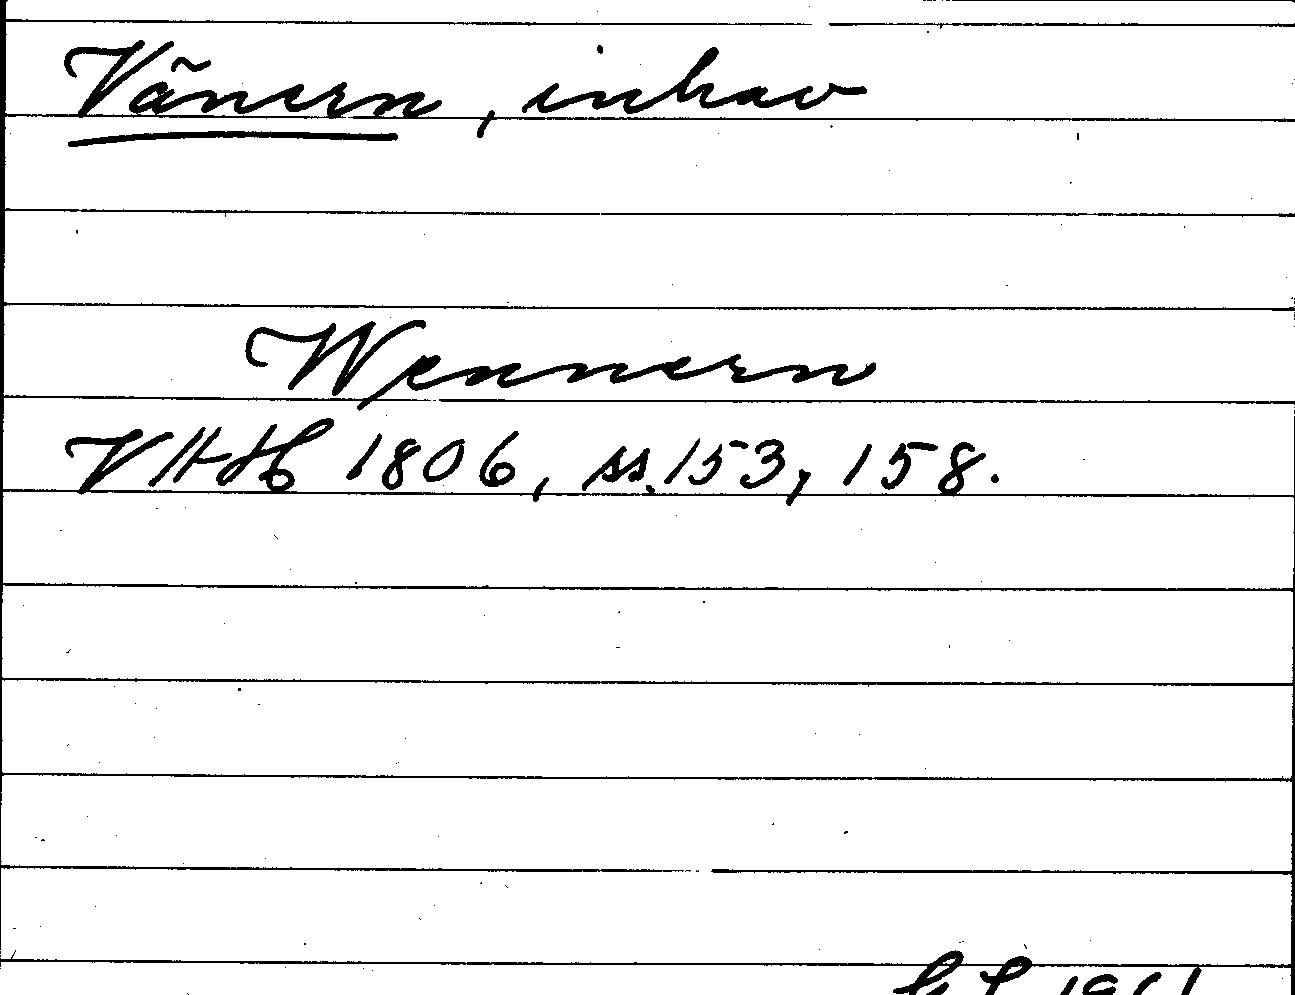 Vänern, inhav
Wennern
VHH 1806, ss. 153, 158.